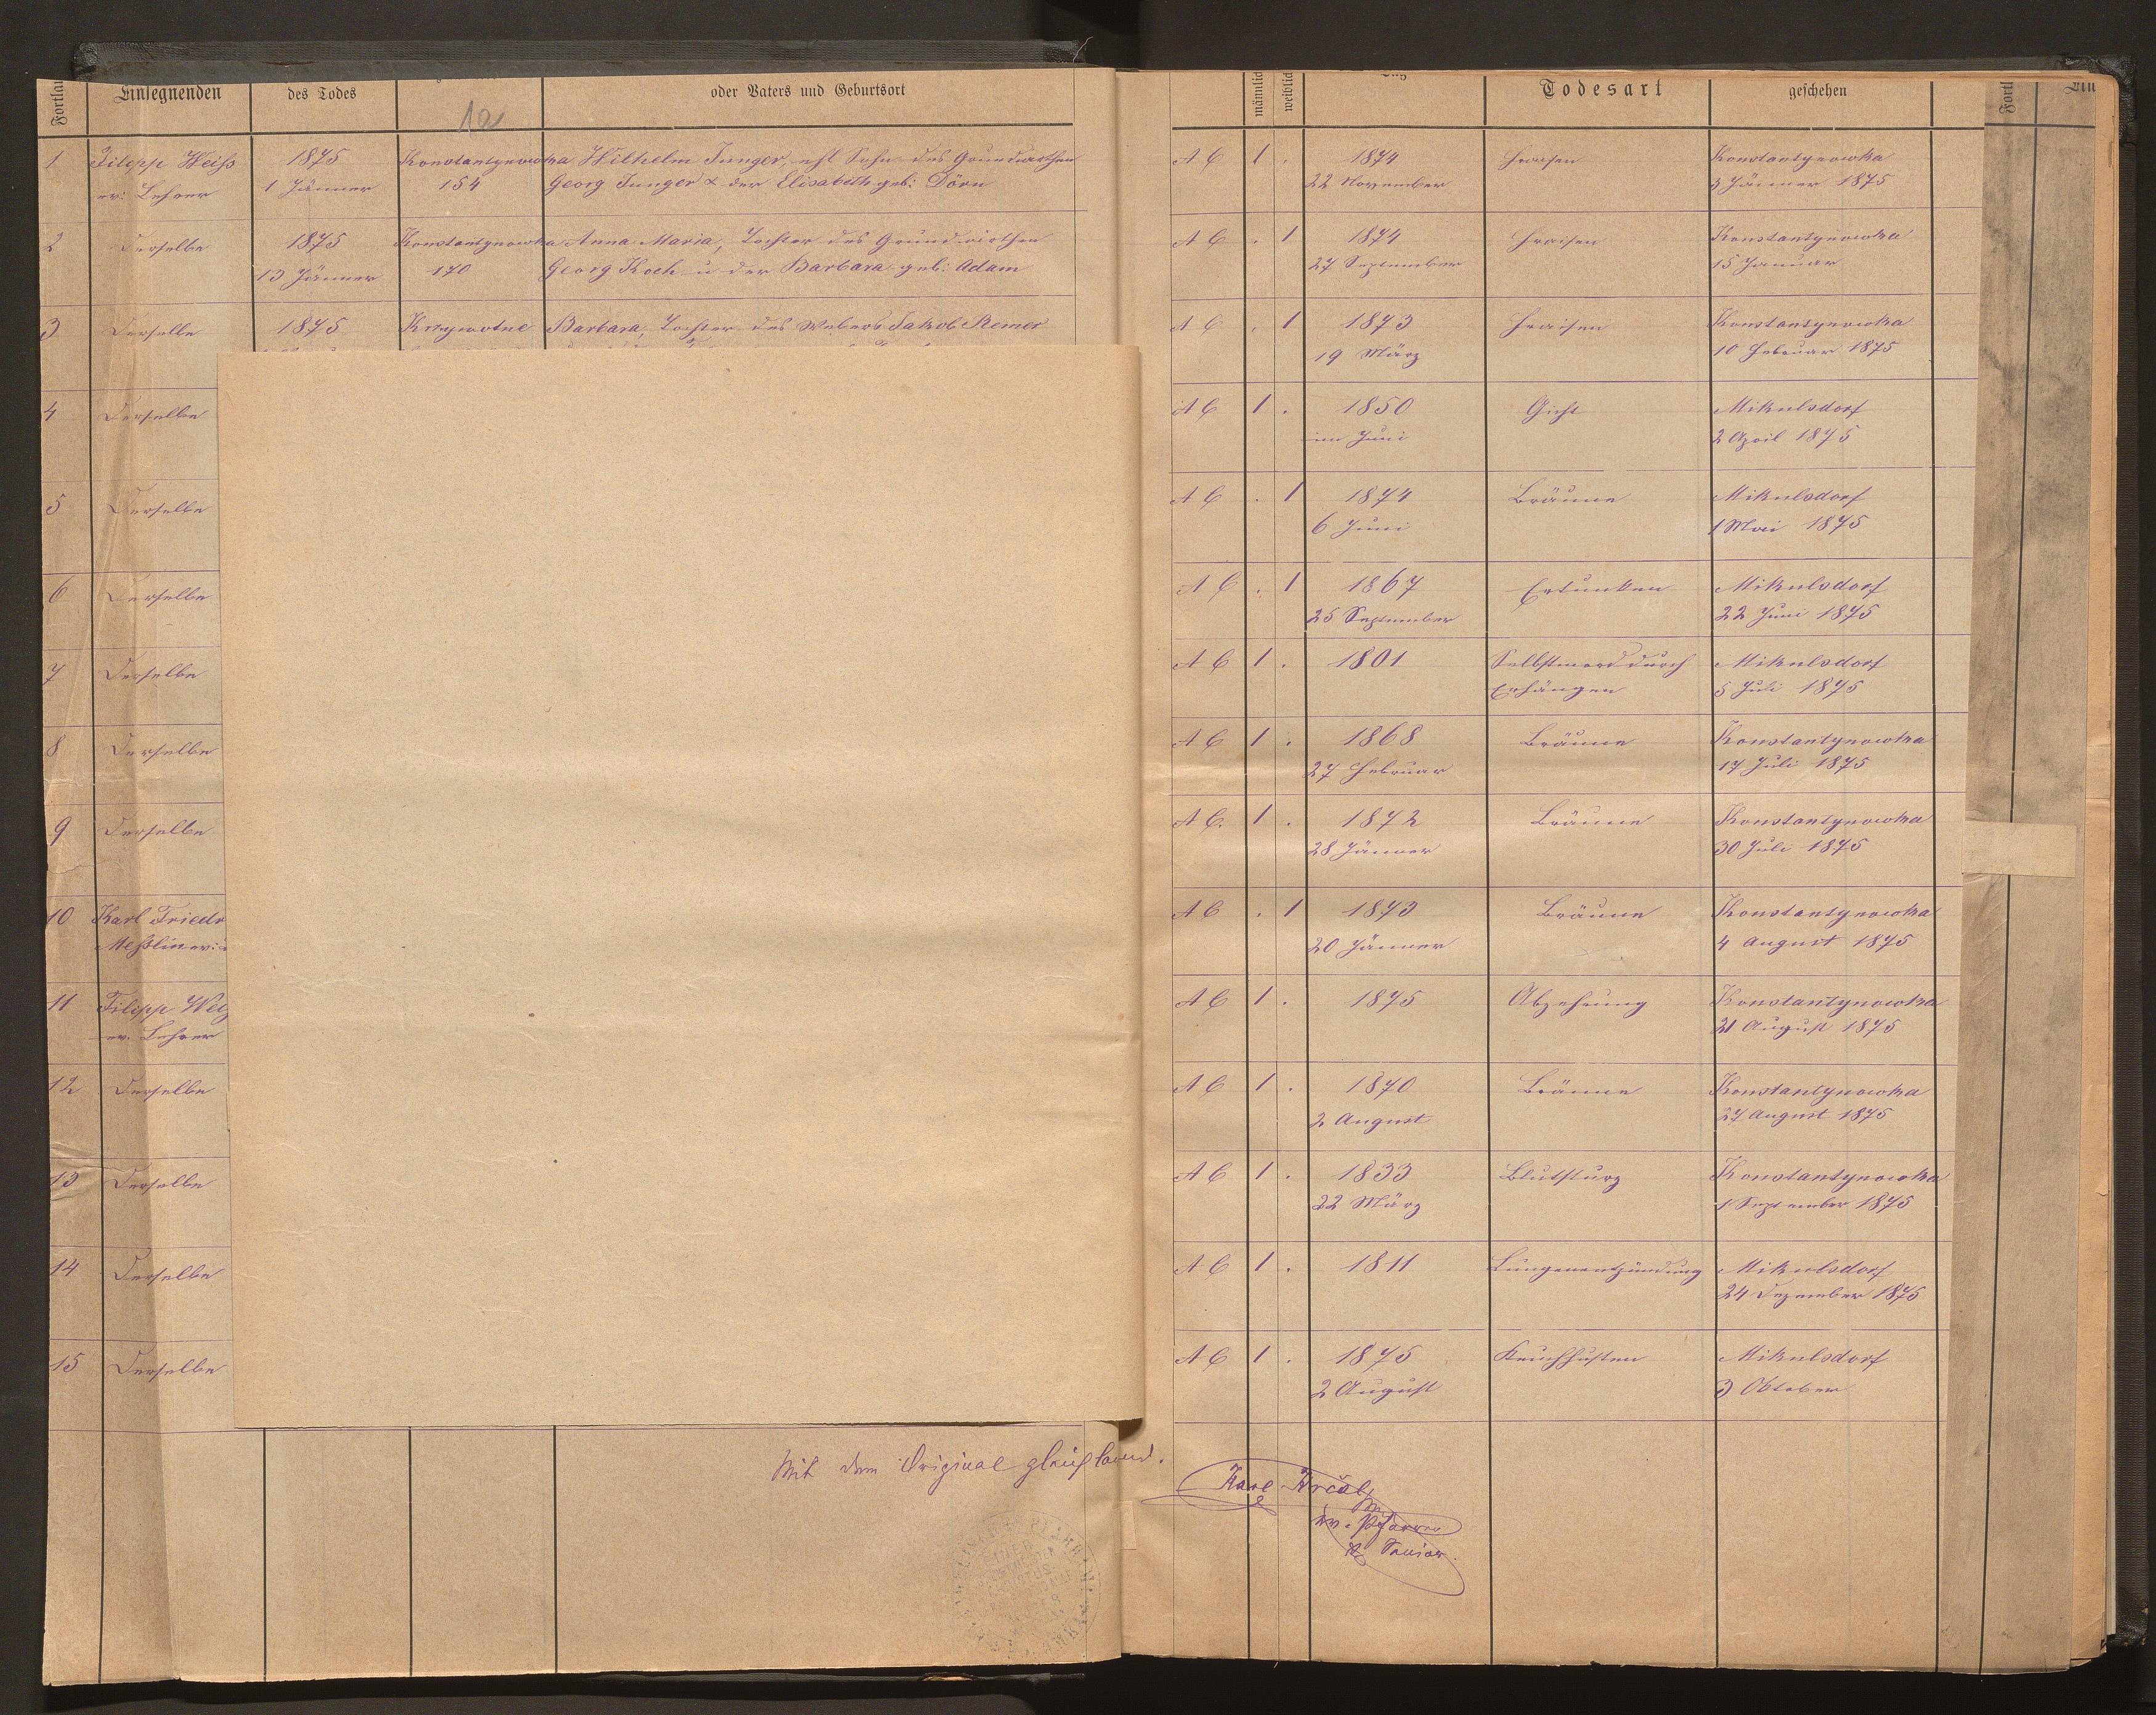 Einsegnenden
des Todes
12
oder Vaters und Geburtsort
männlich
weiblich
Todesart
geschehen
1 Filipp Weiß 1875 Konstantynowka Wilhelm Junger, ehl Sohn des Grundwirthen
ev: Lehrer 1 Jänner 154 Georg Junger & der Elisabeth geb: Dörn
2 Derselbe 1875 Konstantynowka Anna Maria, Tochter des Grundwirthen
13 Jänner 170 Georg Koch u der Barbara geb: Adam
3 Derselbe 1875 Krzywotne Barbara, Tochter des Webers Jakob Remer
4 Derselbe
5 Derselbe
6 Derselbe
7 Derselbe
8 Derselbe
9 Derselbe
10 Karl Friedr
11 Filipp
ev. Lehrer
12 Derselbe
13 Derselbe
14 Derselbe
15 Derselbe
Mit dem Original gleichlautend.
A C 1 . 1874 Fraisen Konstantynowka
22 November 3 Jänner 1875
A C . 1 1874 Fraisen Konstantynowka
27 September 15 Januar
A C . 1 1873 Fraisen Konstantynowka
19 März 10 Februar 1875
A C 1 . 1850 Gicht Mikulsdorf
im Juni 2 April 1875
A C . 1 1874 Bräune Mikulsdorf
6 Juni 1 Mai 1875
A C . 1 1867 Ertunken Mikulsdorf
25 September 22 Juni 1875
A C 1 . 1801 Selbstmord durch Mikulsdorf
Erhängen 5 Juli 1875
A C 1 . 1868 Bräune Konstantynowka
27 Februar 17 Juli 1875
A C. 1 . 1872 Bräune Konstantynowka
28 Jänner 30 Juli 1875
A C . 1 1873 Bräune Konstantynowka
20 Jänner 4 August 1875
A C 1 . 1875 Abzehrung Konstantynowka
21 August 1875
A C 1 . 1870 Bräune Konstantynowka
2 August 27 August 1875
A C 1 . 1833 Blutsturz Konstantynowka
22 März 1 September 1875
A C 1 . 1811 Lungenentzündung Mikulsdorf
24 Dezember 1875
A C 1 . 1875 Keuchhusten Mikulsdorf
2 August 3 Oktober
Karl
ev. Pfarrer
Senior.